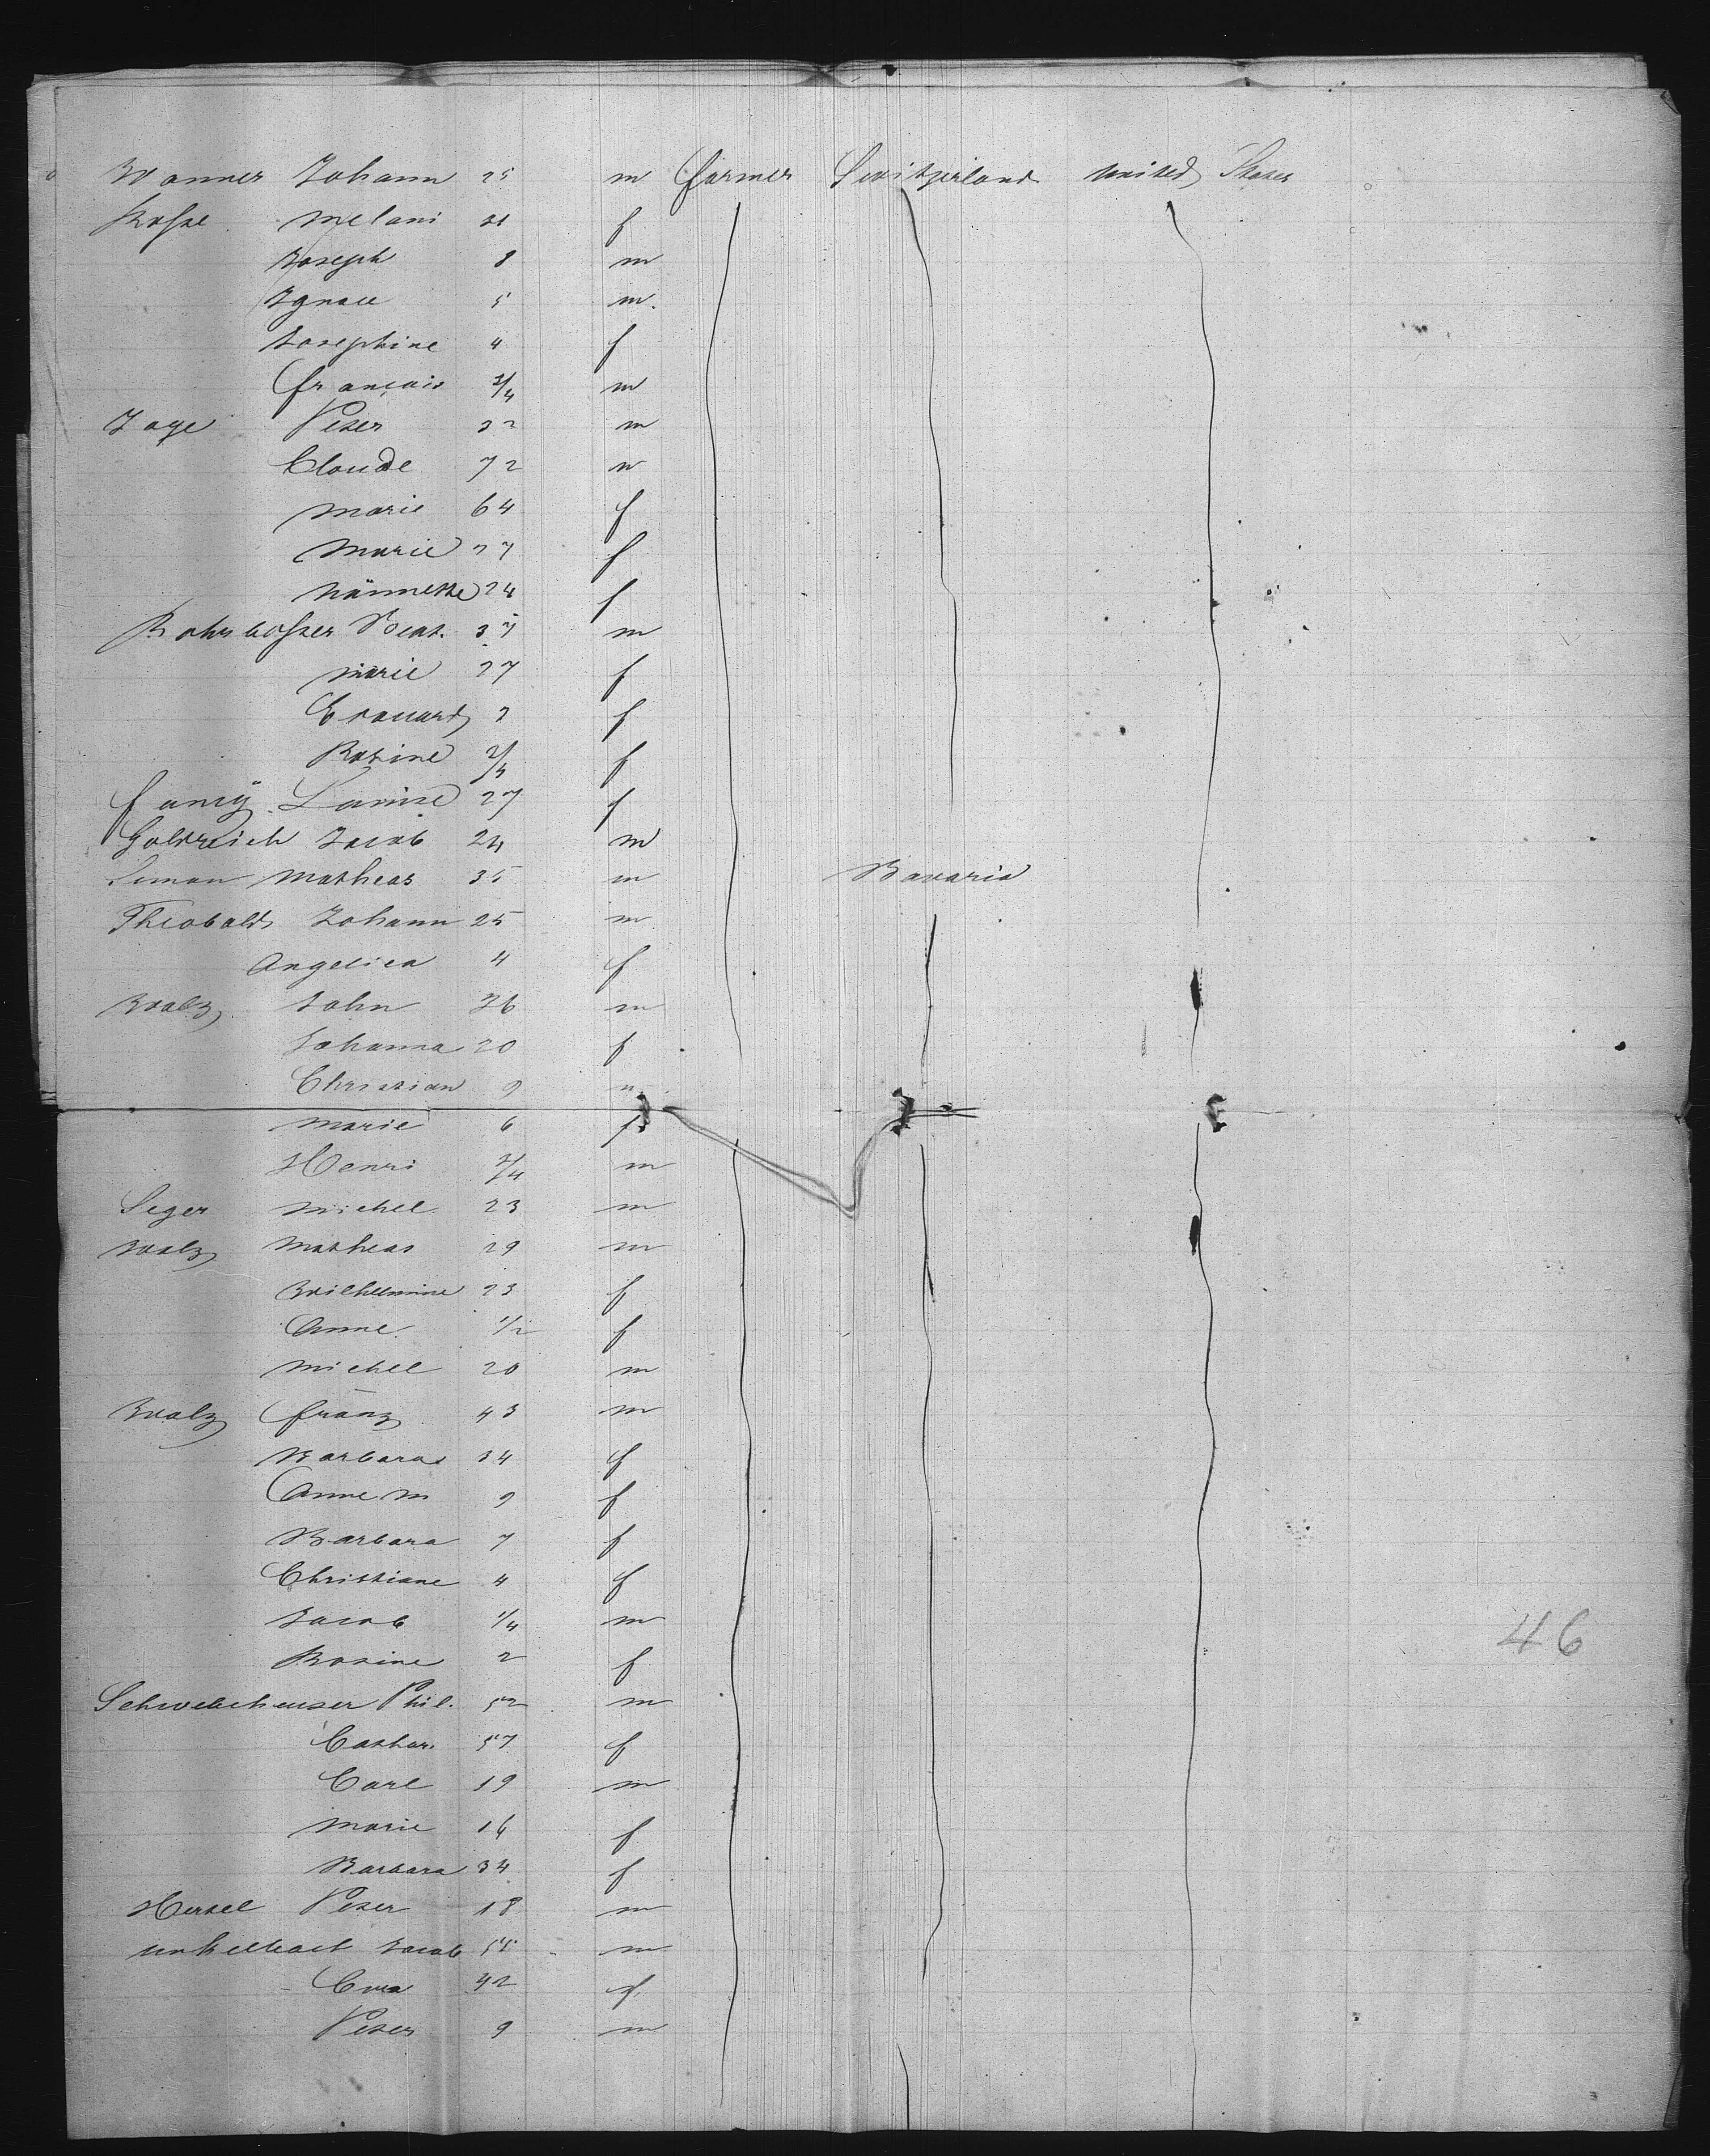 Wanner Johann 25 m farmer Switzerland united States
Rosse Melani 31 f
Joseph 8 m
Ignace 5 m.
Josephine 4 f
Français 3/4 m
Jage Peter 32 m
Claude 72 m
Marie 64 f
Marie 27 f
Nännette 24 f
Rohrbasser Beat. 37 m
Marie 27 f
Edouard 2 f
Rosine 3/4 f
Louise 27 f
Goldreich Jacob 24 m
Leman Matheas 35 m Bavaria
Theobald Johann 25 m
Angelica 4 f
Walz John 36 m
Johanna 20 f
Christian 9 m
Marie 6 f
Henri 3/4 m
Seger Michel 23 m
Walz Matheas 29 m
Wilhelmine 23 f
Anne 1/2 f
Michel 20 m
Walz Franz 43 m
Barbara 34 f
Anne M 9 f
Barbara 7 f
Christiane 4 f
Jacob 1/4 m
46
Rosine 2 f
Phil. 52 m
Cathar. 57 f
Carl 19 m
Marie 16 f
Barbara 34 f
Hertel Peter 18 m
Unkelbach Jacob m
42 f
Peter 9 m